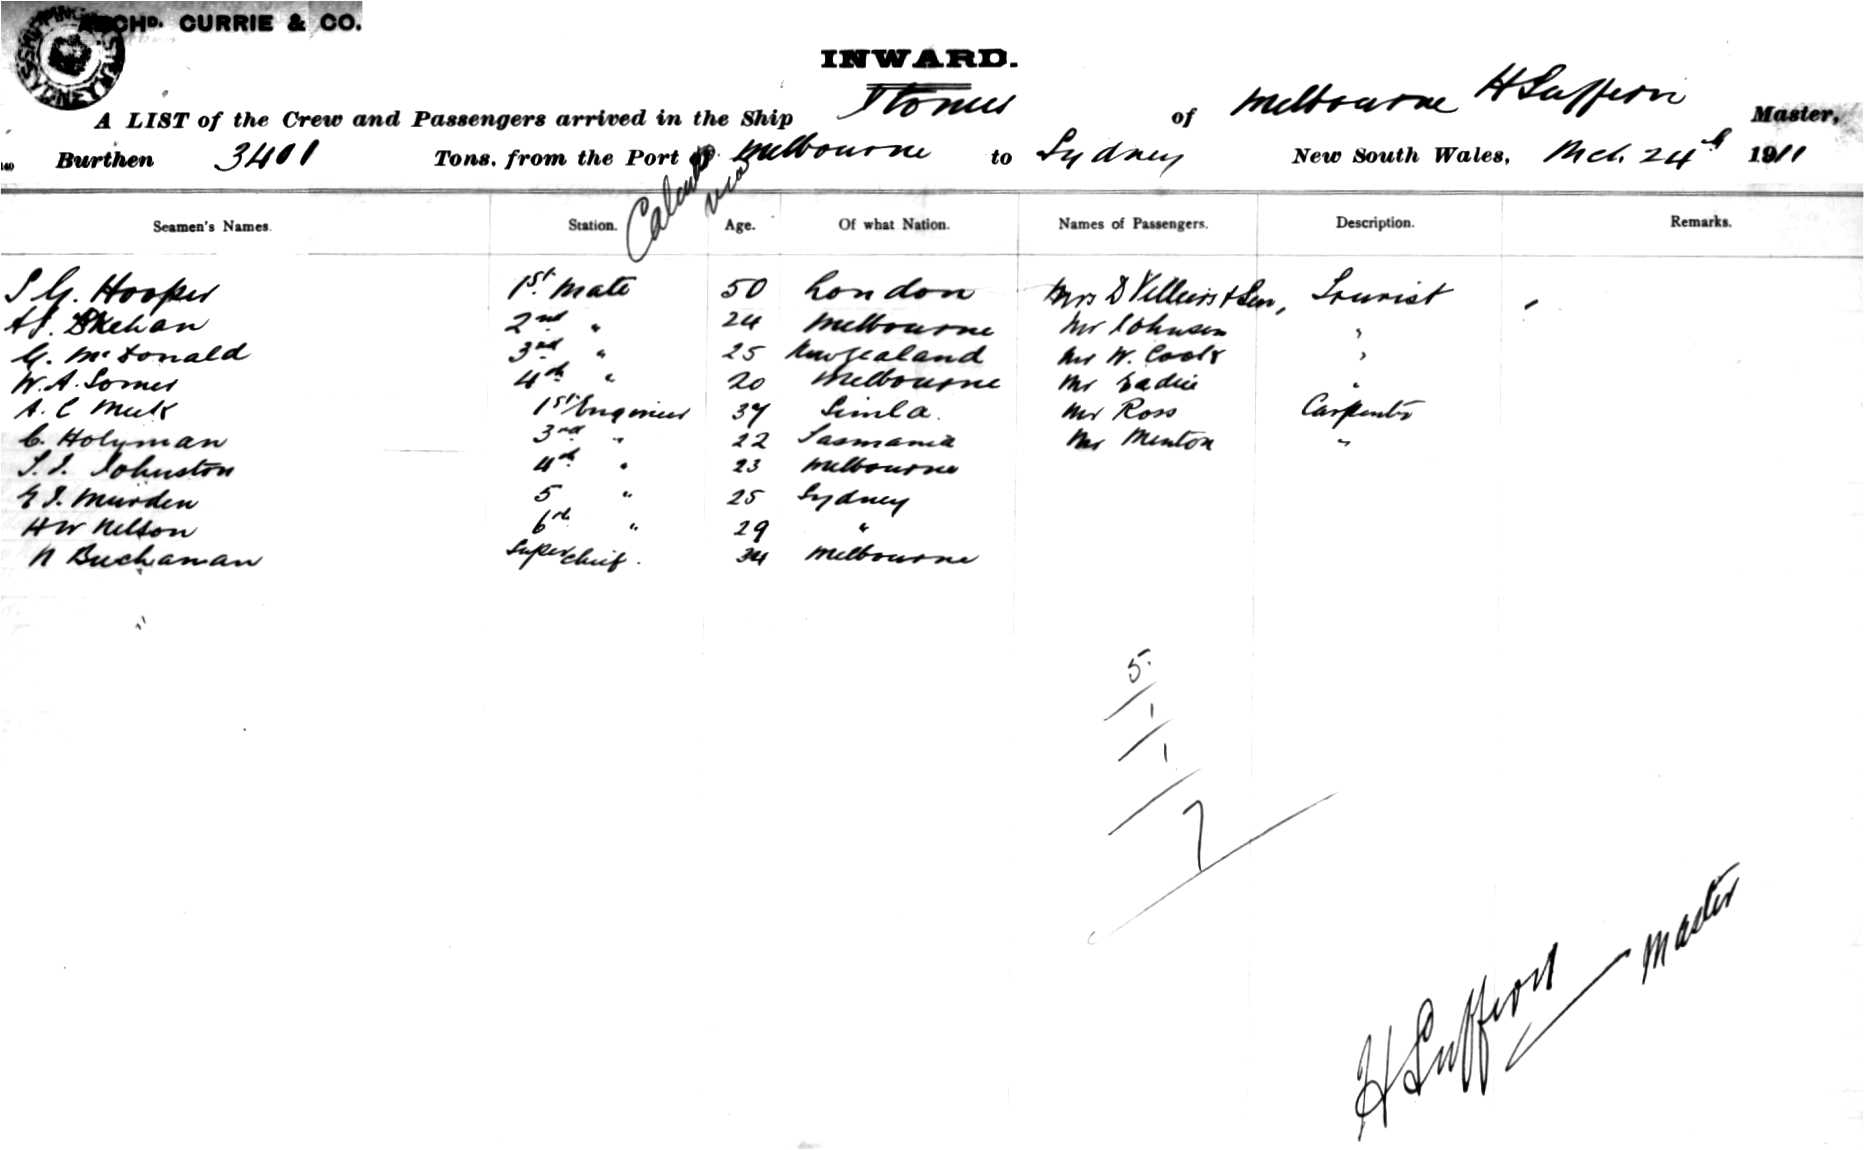 ARCHD. CURRIE & CO.
INWARD.
A LIST of the Crew and Passengers arrived in the Ship of Melbourne H Suffern Master,
Burthen 3401 Tons, from the Port of Calcutta via Melbourne to Sydney New South Wales, Mch. 24th 1911
Seamen's Names. Station. Age. Of what Nation. Names of Passengers. Description. Remarks.
S G. Hooper 1st Mate 50 London Mrs D Villiers & Son, Tourist
2nd " 24 Melbourne Mr Johnson "
G. McDonald 3rd " 25 New Zealand Mr W. Cook "
W. A. Somer 4th " 20 Melbourne Mr Eadie "
A. C Meek 1st Engineer 37 Simla. Mr Ross Carpenter
C. Holyman 3rd " 22 Tasmania Mr Menton "
Johnston 4th " 23 Melbourne
Murden 5 " 25 Sydney
H W Nelson 6th " 29 "
N Buchanan Super chief. 34 Melbourne
5.
1
1
7
H Suffern Master